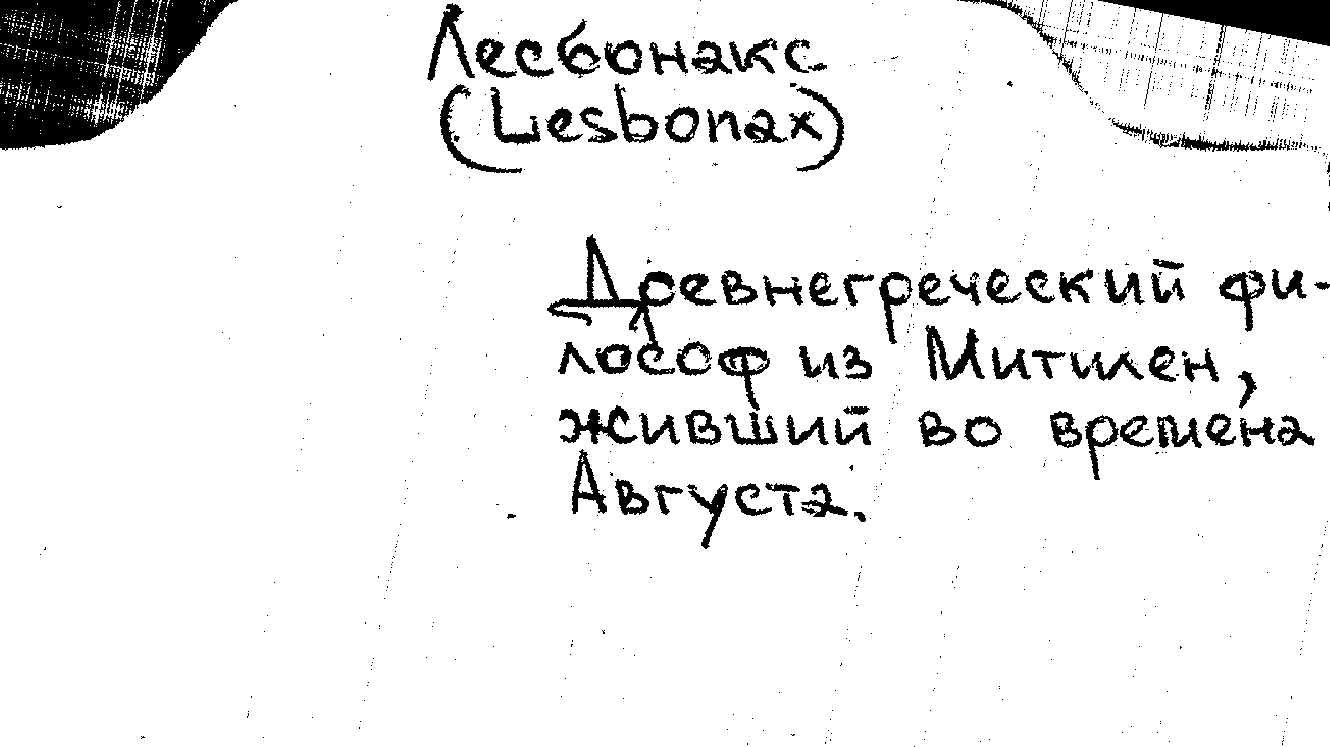 Лесбонакс
(Lesbonax)
Древнегреческий фи-
лософ из Митилен,
живший во времена
Августа.